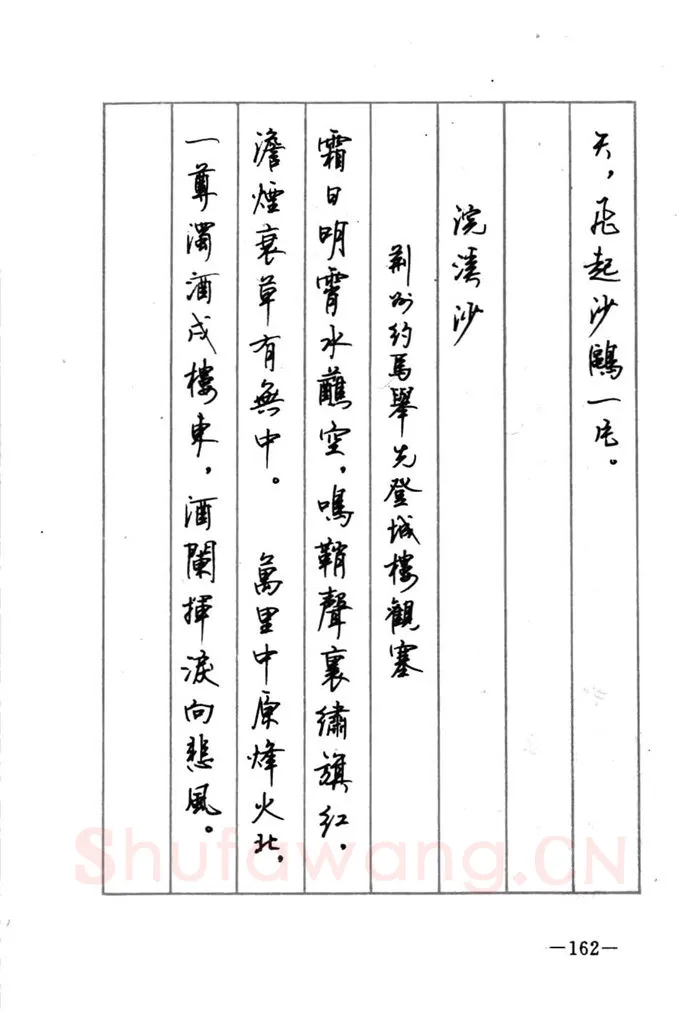 天，飛起沙鷗一片。
浣溪沙
荊州約馬舉先登城樓觀塞
霜日明霄水蘸空，鳴鞘聲裏繡旗紅。
澹煙衰草有無中。　萬里中原烽火北，
一尊濁酒戍樓東，酒闌揮淚向悲風。
Shufawang.CN
—162—